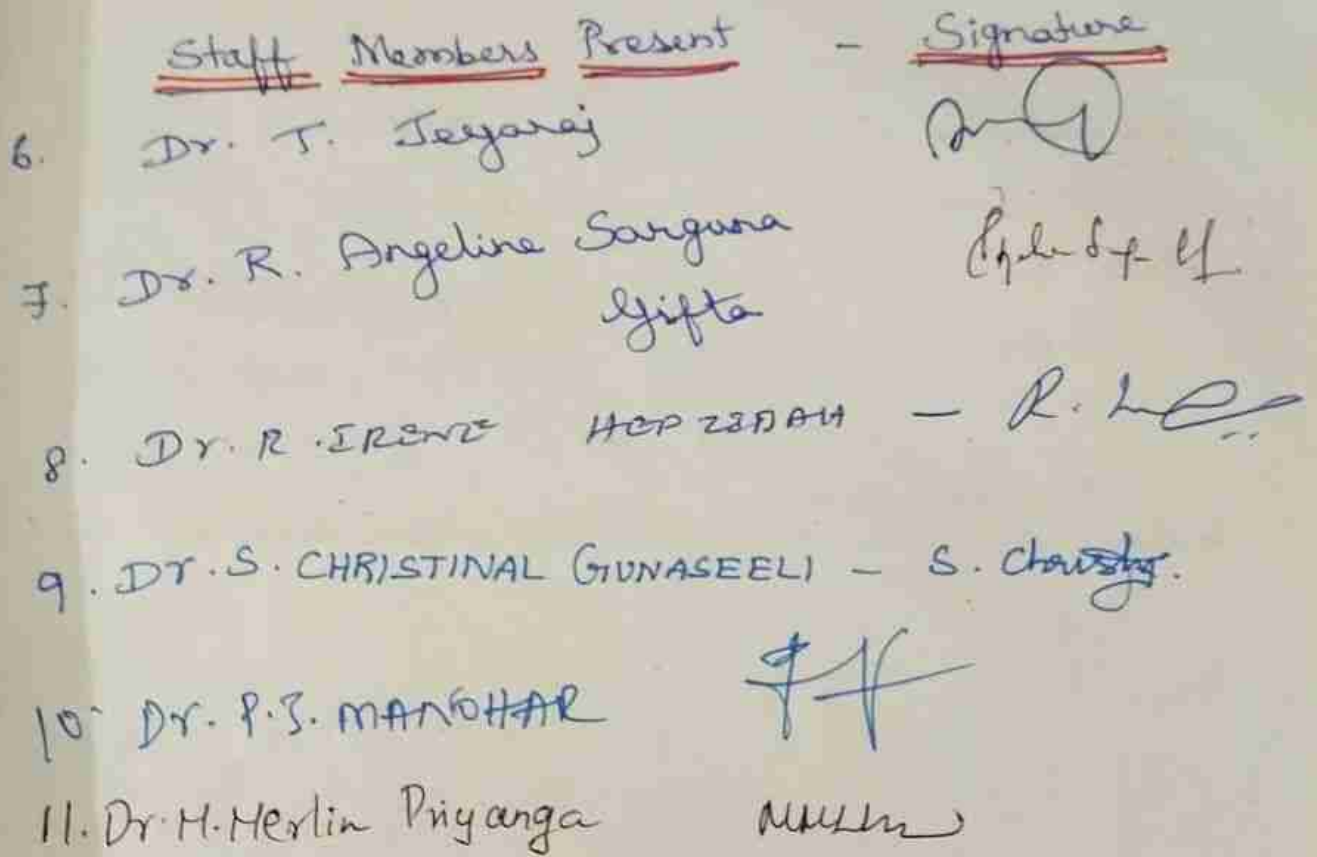 Staff Members Present - Signature
6. Dr. T. Jeyaraj
7. Dr. R. Angeline Sarguna
Gifta
8. Dr. R. IRENE HEPZIBAH - R.
9. Dr. S. CHRISTINAL GUNASEELI - S. Christy.
10. Dr. P.J. MANOHAR
11. Dr. M. Merlin Priyanga